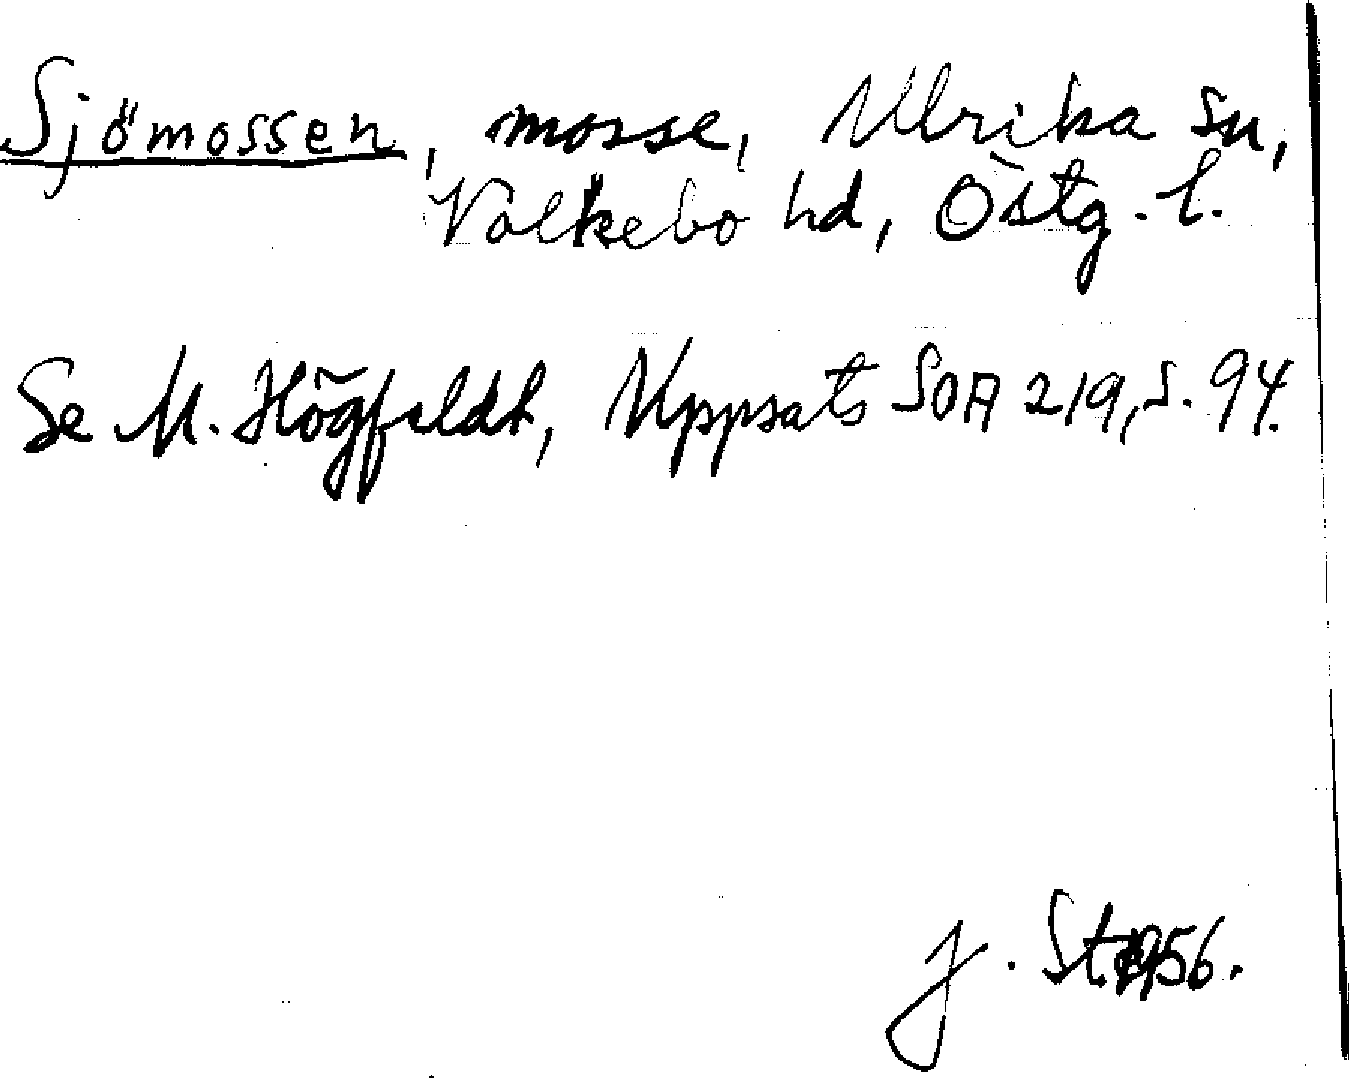 Sjömossen, mosse, Ulrika sn,
Valkebo hd, Östg. l.
Se M. Högfeldt, Uppsats SOA 219, s. 94.
J. St. 1956.